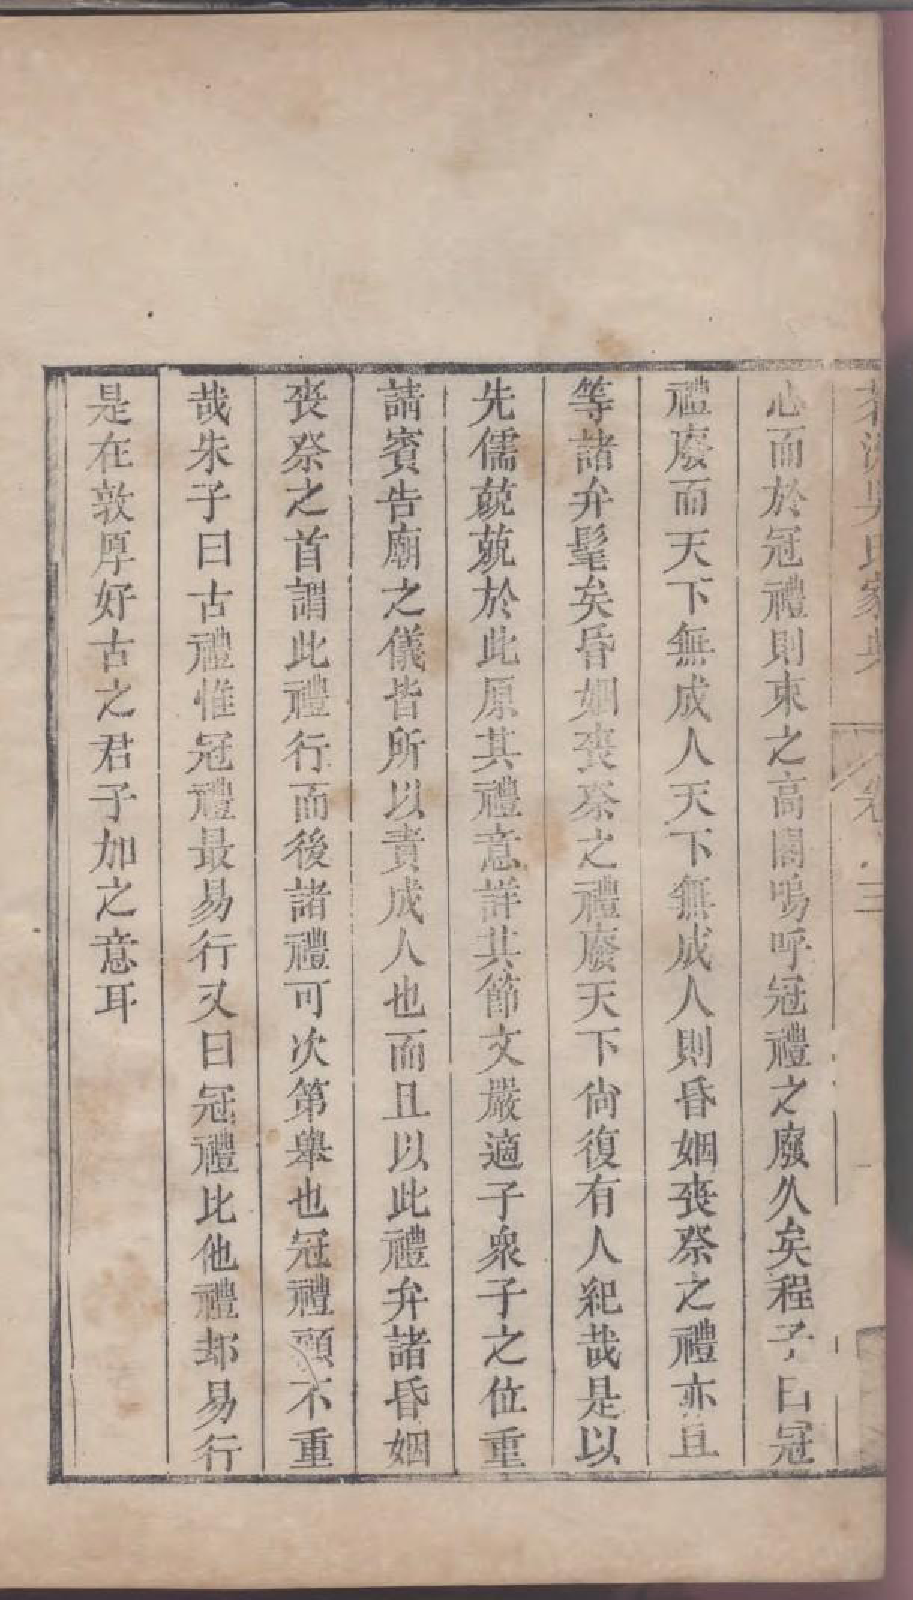 茗洲吳氏家典 卷 三
心而於冠禮則束之高閣嗚呼冠禮之廢久矣程子曰冠
禮廢而天下無成人天下無成人則昏姻喪祭之禮亦且
等諸弁髦矣昏姻喪祭之禮廢天下尚復有人紀哉是以
先儒兢兢於此原其禮意詳其節文嚴適子衆子之位重
請賓告廟之儀皆所以責成人也而且以此禮弁諸昏姻
喪祭之首謂此禮行而後諸禮可次第舉也冠禮顧不重
哉朱子曰古禮惟冠禮最易行又曰冠禮比他禮却易行
是在敦厚好古之君子加之意耳